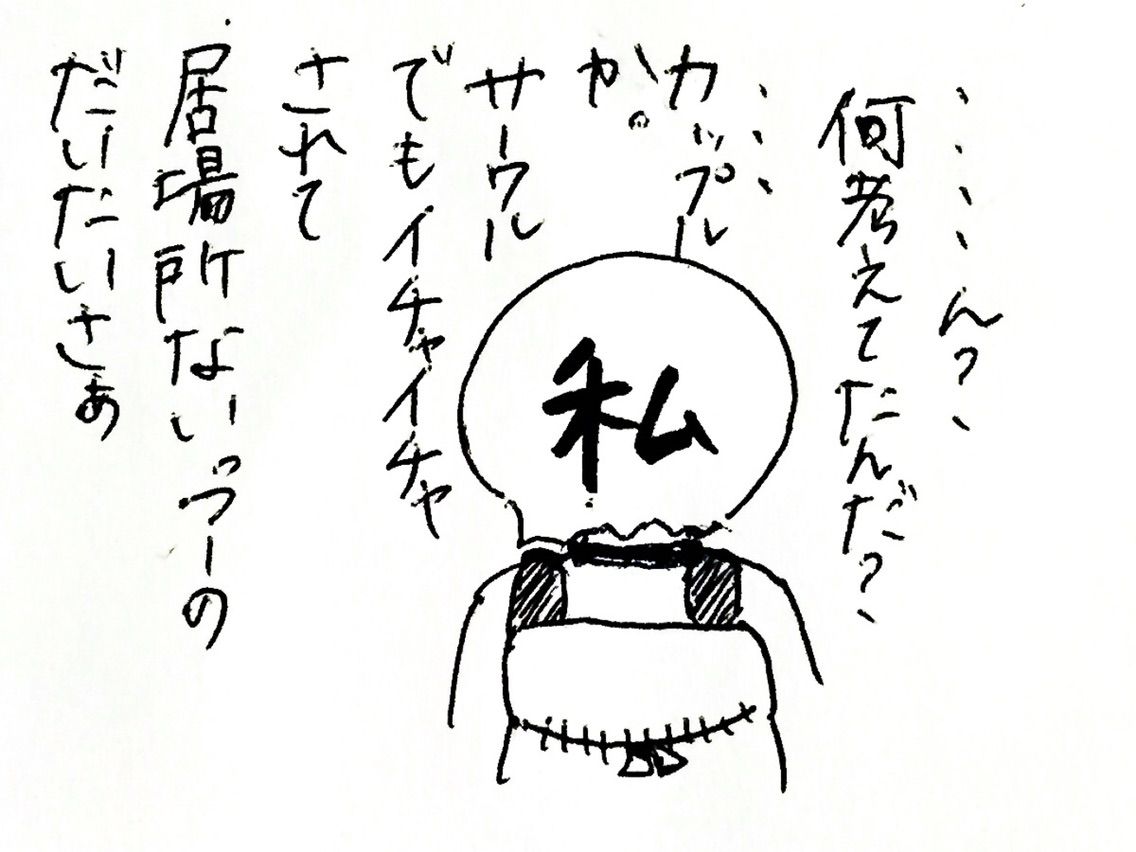 、、、、ん?、
何考えてたんだ?、
、、、
カップル
か。
サークル
でもイチャイチャ
されて
居場所ないっつーの
だいたいさぁ
私